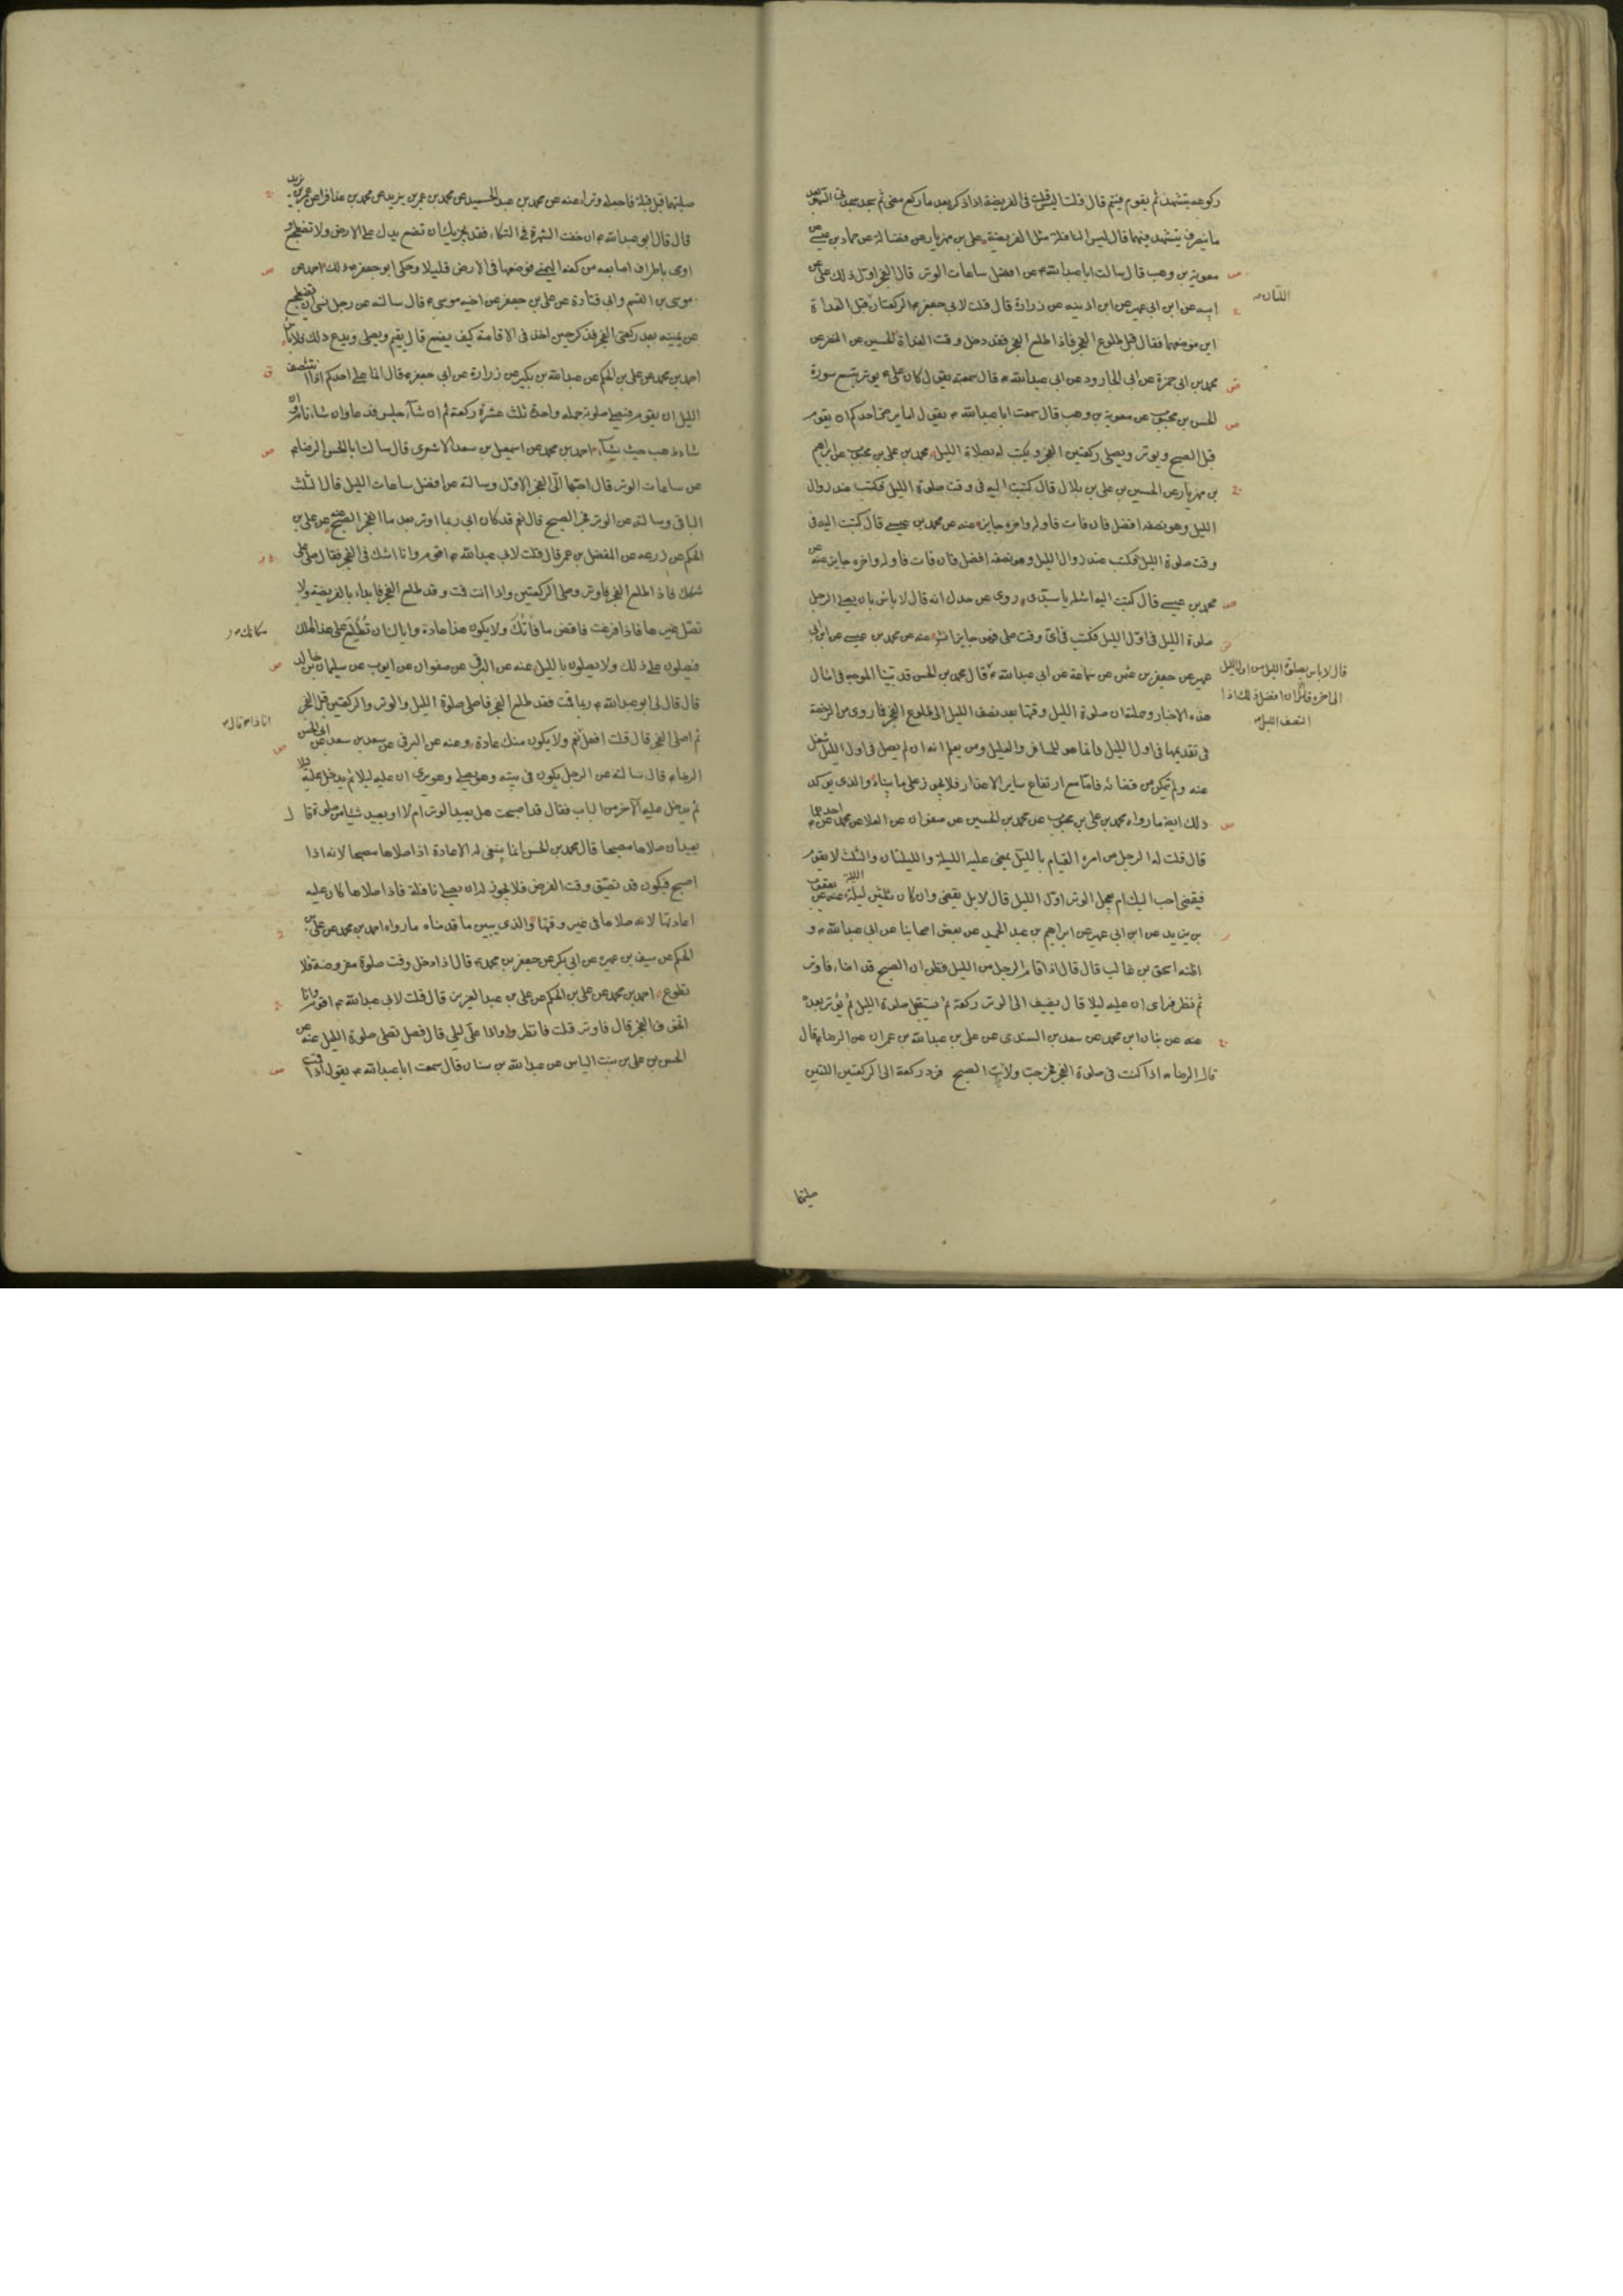 ركوعه يتشهد ثم يقوم فيتم قال قلت اليس قلت في الفريضة اذا ذكر بعد ما ركع مضى ثم سجد سجدتي السهو بعد
ما ينصرف يتشهد فيهما قال ليس النافلة مثل الفريضة علي بن مهزيار عن فضالة عن حماد بن عيسى عن
معوية بن وهب قال سالت ابا عبدالله ع عن افضل ساعات الوتر قال الفجر اول ذلك علي عن
ابيه عن ابن ابي عمير عن ابن اذينه عن زرارة قال قلت لابي جعفر ع الركعتان قبل الغداة
اللتان
اين موضعهما فقال قبل طلوع الفجر فاذا طلع الفجر فقد دخل وقت الغداة الحسين عن النضر عن
محمد بن ابي حمزة عن ابي الجارود عن ابي عبدالله ع قال سمعته يقول كان علي ع يوتر بتسع سورة
الحسن بن محبوب عن معوية بن وهب قال سمعت ابا عبدالله ع يقول اما يرضى احدكم ان يقوم
قبل الصبح ويوتر ويصلي ركعتين الفجر ويكتب له بصلاة الليل محمد بن علي بن محبوب عن ابراهيم
بن مهزيار عن الحسين بن علي بن بلال قال كتبت اليه في وقت صلوة الليل فكتب عند زوال
الليل وهو نصفه افضل فان فات فاوله واخره جايز عنه عن محمد بن عيسى قال كتبت اليه في
وقت صلوة الليل فكتب عند زوال الليل وهو نصفه افضل فان فات فاوله واخره جايز عنه عن
محمد بن عيسى قال كتبت اليه اسئله يا سيدي روى عن جدك انه قال لا باس بان يصلي الرجل
صلوة الليل في اول الليل فكتب في اي وقت صلى فهو جايز انش عنه عن محمد بن عيسى عن ابن ابي
عمير عن جعفر بن عثمن عن سماعة عن ابي عبدالله ع قال محمد بن الحسن قد بينا الموجه في امثال
قال لا باس بصلوة الليل من اول الليل
الى اخره فان افضل ذلك اذا
انتصف الليل
هذه الاخبار وجملته ان صلوة الليل وقتها بعد نصف الليل الى طلوع الفجر فما روى من الرخصة
في تقديمها في اول الليل فانما هو للمسافر والعليل ومن يعلم انه ان لم يصل في اول الليل شغل
عنه ولم يتمكن من قضائه فاما مع ارتفاع ساير الاعذار فلا يجوز على ما بيناه والذي يوكد
ذلك ايضا ما رواه محمد بن علي بن محبوب عن محمد بن الحسين عن صفوان عن العلا عن محمد عن احدهما ع
قال قلت له الرجل من امره القيام بالليل يمضي عليه الليلة والليلتان والثلث لا يقوم
فيقضي احب اليك ام يعجل الوتر اول الليل قال لا بل يقضي وان كان ثلثين ليلة عنه عن يعقوب
بن يزيد عن ابن ابي عمير عن ابراهيم بن عبد الحميد عن بعض اصحابنا عن ابي عبدالله ع و
اظنه اسحق بن غالب قال قال اذا قام الرجل من الليل فظن ان الصبح قد اضاء فاوتر
ثم نظر فراى ان عليه ليلا قال يضيف الى الوتر ركعة ثم يستقبل صلوة الليل ثم يوتر بعده
عنه عن بنان ابن محمد عن سعد بن السندي عن علي بن عبدالله بن عمران عن الرضا ع قال
قال الرضا ع اذا كنت في صلوة الفجر فخرجت ورايت الصبح فزد ركعة الى الركعتين اللتين
صليتهما
صليتهما قبل قبلة فاجعله وترا عنه عن محمد بن عبد الحميد عن محمد بن عمر بن يزيد عن محمد بن عذافر عن عمر بن يزيد
قال قال ابو عبدالله ع ان خفت الشهرة في التكاءة فقد يجزيك ان تضع يدك على الارض ولا تضطجع و
اومى باطراف اصابعه من كفه اليمنى فوضعها في الارض قليلا وحكى ابو جعفر ع ذلك احمد عن
موسى بن القسم وابي قتادة عن علي بن جعفر عن اخيه موسى ع قال سالته عن رجل نسي ان يضطجع
عن يمينه بعد ركعتي الفجر فذكر حين اخذ في الاقامة كيف يصنع قال يقيم ويصلي ويدع ذلك فلا باس
احمد بن محمد عن علي بن الحكم عن عبدالله بن بكير عن زرارة عن ابي جعفر ع قال انما على احدكم اذا انتصف
الليل ان يقوم فيصلي صلوته جملة واحدة ثلث عشرة ركعة ثم ان شاء جلس فدعا وان شاء نام وان
شاء ذهب حيث شاء احمد بن محمد عن اسمعيل بن سعد الاشعري قال سالت ابا الحسن الرضا ع
عن ساعات الوتر قال احبها الى الفجر الاول وسالته عن افضل ساعات الليل قال الثلث
الباقي وسالته عن الوتر بعد فجر الصبح قال نعم قد كان ابي ربما اوتر بعد ما انفجر الصبح عنه عن علي بن
الحكم عن زرعه عن المفضل بن عمر قال قلت لابي عبدالله ع اقوم وانا اشك في الفجر فقال صل على
شكك فاذا طلع الفجر فاوتر وصل الركعتين واذا انت قمت وقد طلع الفجر فابدا بالفريضة ولا
تصل غيرها فاذا فرغت فاقض ما فاتك ولا يكون هذا عادة واياك ان تطلع على هذا اهلك
فيصلون على ذلك ولا يصلون بالليل عنه عن البرقي عن صفوان عن ايوب عن سليمان بن خالد
قال قال لي ابو عبدالله ع ربما قمت فقد طلع الفجر فاصلي صلوة الليل والوتر والركعتين قبل الفجر
ثم اصلي الفجر قال قلت افعل نعم ولا يكون منك عادة وعنه عن البرقي عن سعد بن سعد عن ابي الحسن
انا ذا قال
الرضا ع قال سالته عن الرجل يكون في بيته وهو يصلي وهو يرى ان عليه ليلا ثم يدخل عليه
ثم يدخل عليه الاخر من الباب فقال قد اصبحت هل يعيد الوتر ام لا او يعيد شيئا من صلوته قال
يعيد ان صلاها مصبحا قال محمد بن الحسن انما ينبغي له الاعادة اذا صلاها مصبحا لانه اذا
اصبح فيكون قد تضيق وقت الفرض فلا يجوز له ان يصلي نافلة فاذا صلاها كان عليه
اعادتها لانه صلاها في غير وقتها والذي يبين ما قدمناه ما رواه احمد بن محمد عن علي بن
الحكم عن سيف بن عميرة عن ابي بكر عن جعفر بن محمد ع قال اذا دخل وقت صلوة مفروضة فلا
تطوع احمد بن محمد عن علي بن الحكم عن علي بن عبد العزيز قال قلت لابي عبدالله ع اقوم وانا
اتخوف الفجر قال فاوتر قلت فانظر واذا علي ليل قال فصل تصلي صلوة الليل عنه عن
الحسن بن علي بن بنت الياس عن عبدالله بن سنان قال سمعت ابا عبدالله ع يقول اذا قمت